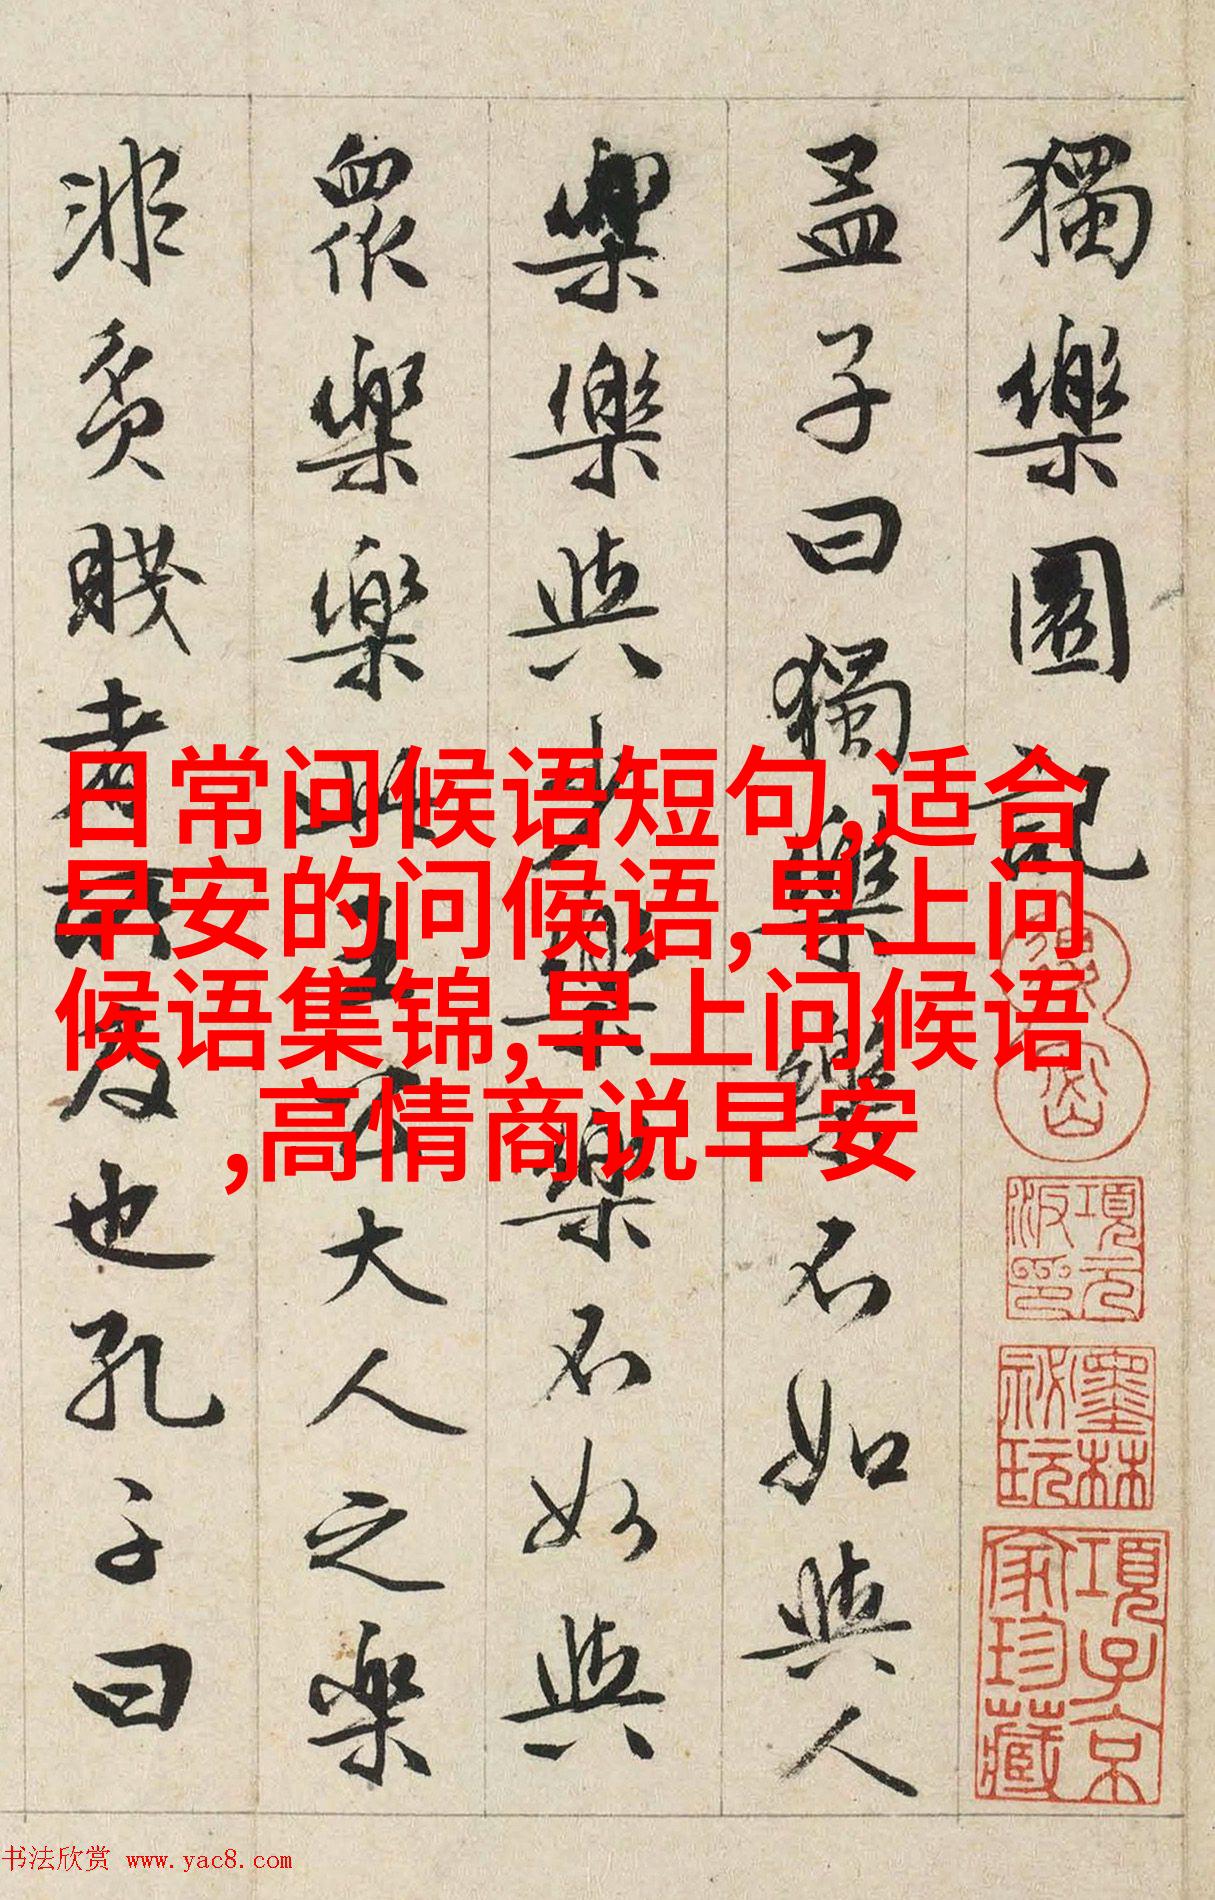 獨樂園記
孟子曰獨樂樂不如與人
樂樂與少樂樂不如與
眾樂樂此王公大人之樂
非貧賤者所及也孔子曰
日常问候语短句,适合
早安的问候语,早上问
候语集锦,早上问候语
,高情商说早安
項元汴印
墨林祕玩
項子京家珍藏
书法欣赏 www.yac8.com